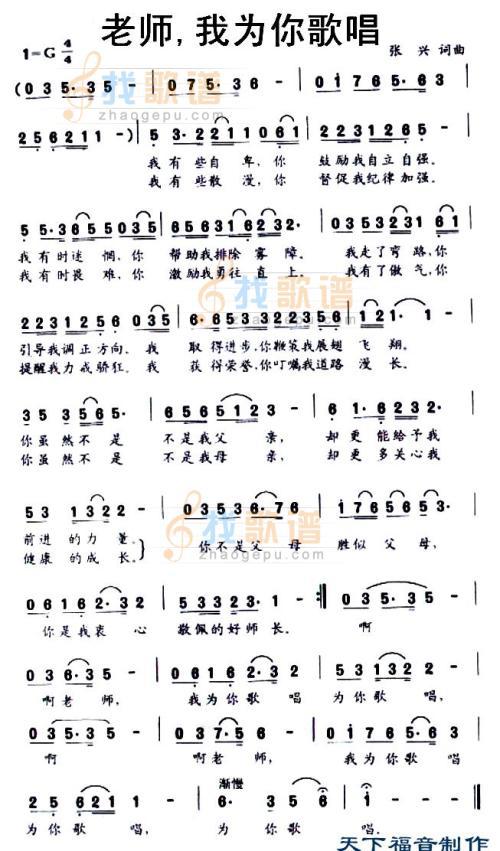 老师,我为你歌唱
1=G 4/4
张 兴 词曲
(0 3 5· 3 5 - | 0 7 5· 3 6 - | 0 1 7 6 5· 6 3 |
2 5 6 2 1 1 -) | 5 3· 2 2 1 1 0 6 1 | 2 2 3 1 2 6 5 - |
我有些自卑,你 鼓励我自立自强。
我有些散漫,你 督促我纪律加强。
5 5·3 6 5 5 0 3 5 | 1 6 5 3 5 1 6 2 3 2· | 0 3 5 3 5 3 2 1 6 1 |
我有时迷惘,你 帮助我排除雾障。 我走了弯路,你
我有时畏难,你 激励我勇往直上。 我有了傲气,你
2 2 3 1 2 5 6 0 3 5 | 6·6 5 3 3 2 2 2 3 5 6 | 1 2 1· 1 - |
引导我调正方向。我 取得进步,你鞭策我展翅飞翔。
提醒我力戒骄狂。我 获得荣誉,你叮嘱我道路漫长。
3 5 3 5 6 5· | 6 5 6 5 5 1 2 3 | 6 1·6 2 3 2· |
你虽然不是 不是我父亲, 却更能给予我
你虽然不是 不是我母亲, 却更多关心我
5 3 1 3 2 2 - | 0 3 5 3 6·7 6 | 0 1 7 6 5 6 5 3· |
前进的力量。
健康的成长。
你不是父母 胜似父母,
0 6 1 6 2·3 2 | 5 3 3 2 3· 1 - :‖ 0 3 5· 3 5 |
你是我衷心 敬佩的好师长。 啊
0 3 6·3 5 | 0 6 1 6 2·3 2 | 0 3 2 1 6 1 |
啊老师, 我为你歌唱 为你歌唱,
0 3 5· 3 5 | 0 7 5· 3 6 | 0 1 7 6 5·6 3 |
啊 啊老师, 我为你歌唱
渐慢
2 5 6 2 1 - | 6· 3 5 6 | 1 - - - ‖
为你歌唱, 为你歌唱。
找歌谱
zhaogepu.com
找歌谱
zhaogepu.com
找歌谱
zhaogepu.com
天下福音制作